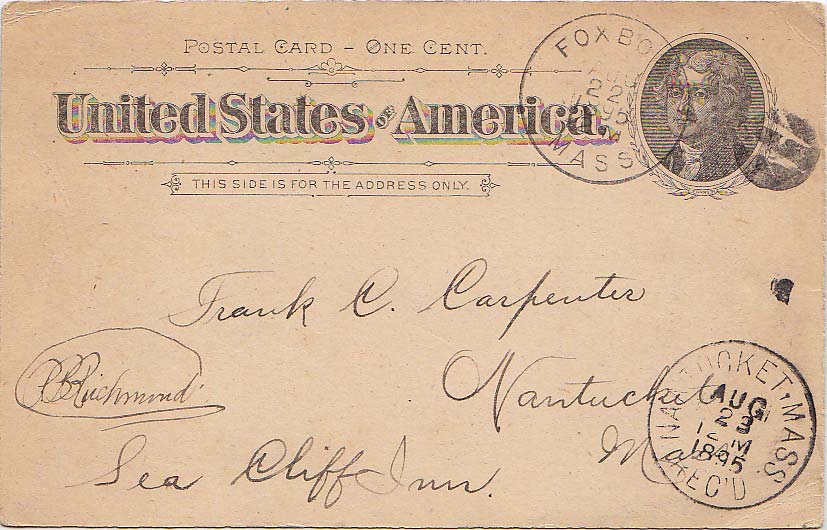 POSTAL CARD – ONE CENT.
United States of America.
THIS SIDE IS FOR THE ADDRESS ONLY.
FOXBO
MASS
Frank C. Carpenter
Nantucket
Sea Cliff Inn.
Richmond
NANTUCKET, MASS.
AUG
23
12 M
1895
REC'D